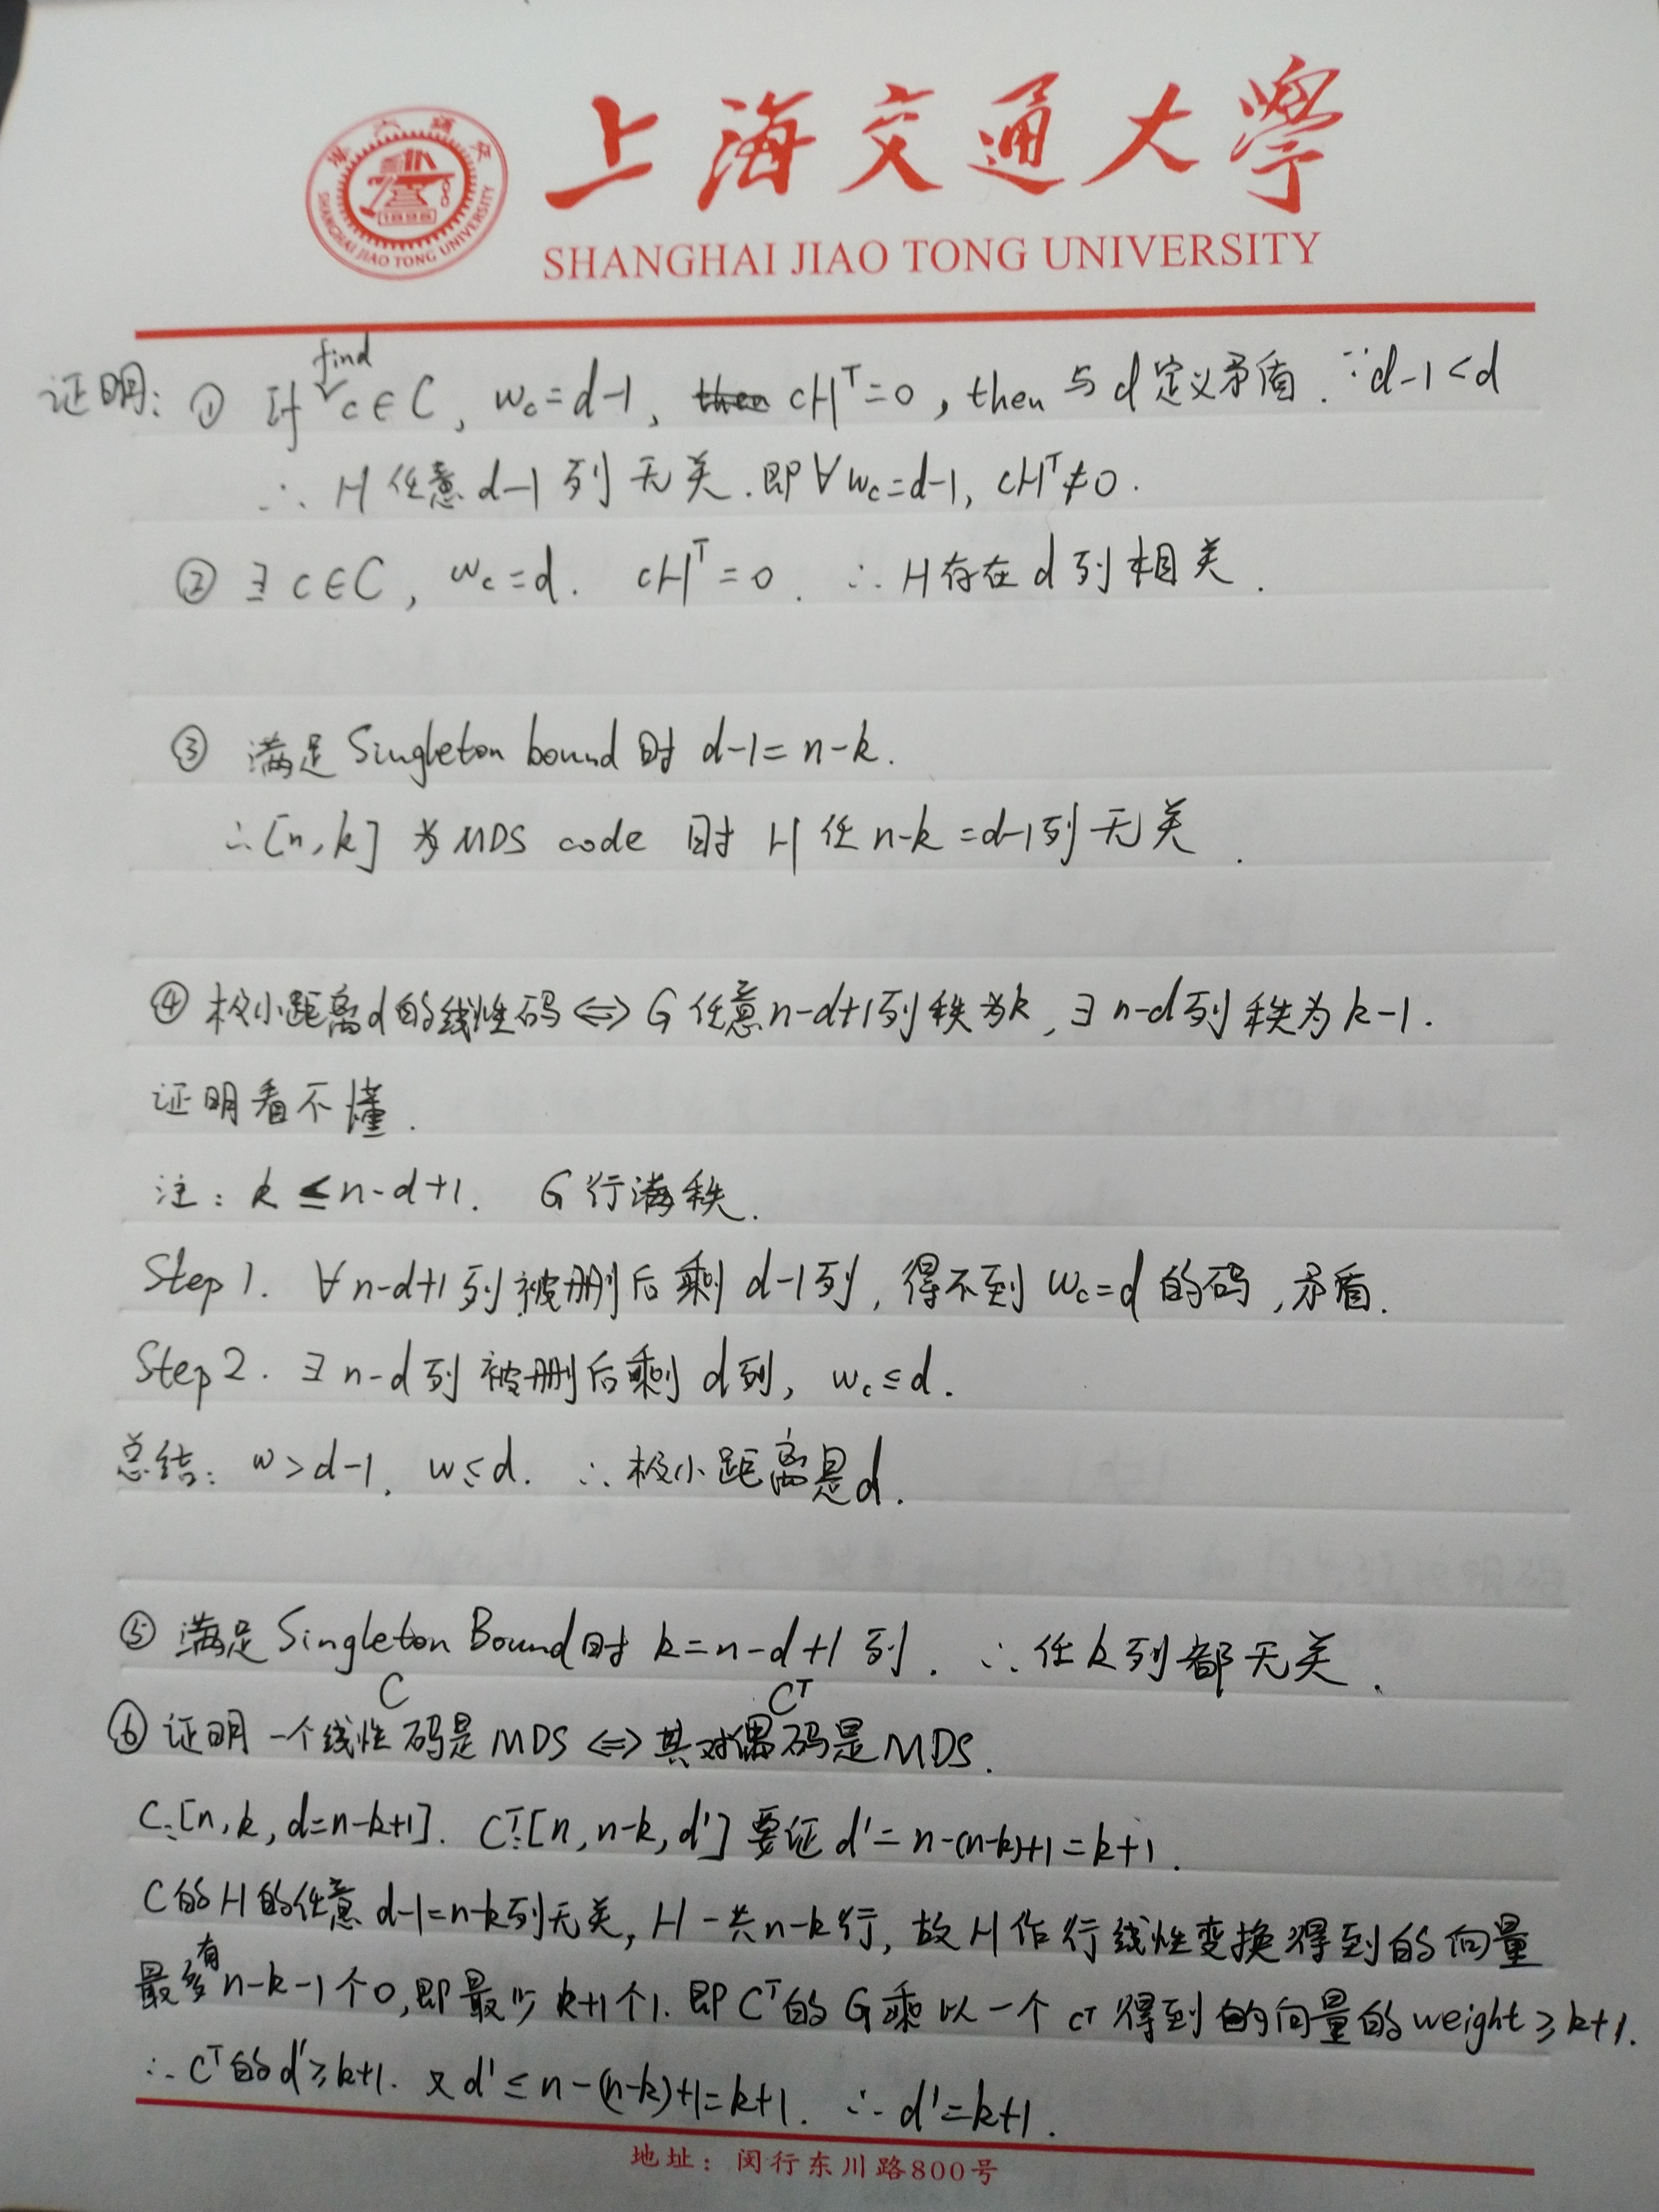 上海交通大學
SHANGHAI JIAO TONG UNIVERSITY
1896
SHANGHAI JIAO TONG UNIVERSITY
find
证明: ① If c∈C, w_c=d-1, then cH^T=0, then 与d定义矛盾. ∵d-1<d
∴ H任意d-1列无关. 即∀w_c=d-1, cH^T≠0.
② ∃ c∈C, w_c=d. cH^T=0. ∴ H存在d列相关.
③ 满足Singleton bound时 d-1=n-k.
∴[n,k] 为MDS code 时 H任n-k=d-1列无关.
④ 极小距离d的线性码⇔G任意n-d+1列秩为k, ∃ n-d列秩为k-1.
证明看不懂.
注: k≤n-d+1. G行满秩.
Step 1. ∀ n-d+1列被删后剩 d-1列, 得不到 w_c=d 的码, 矛盾.
Step 2. ∃ n-d列被删后剩d列, w_c≤d.
总结: w>d-1, w≤d. ∴极小距离是d.
⑤ 满足Singleton Bound时 k=n-d+1列. ∴任k列都无关.
C C^T
⑥ 证明一个线性码是MDS⇔其对偶码是MDS.
C:[n,k,d=n-k+1]. C^T:[n,n-k,d'] 要证d'=n-(n-k)+1=k+1.
C的H的任意d-1=n-k列无关, H一共n-k行, 故H作行线性变换得到的向量
有
最多n-k-1个0, 即最少k+1个1. 即C^T的G乘以一个c^T得到的向量的weight≥k+1.
∴C^T的d'≥k+1. 又d'≤n-(n-k)+1=k+1. ∴d'=k+1.
地址: 闵行东川路800号